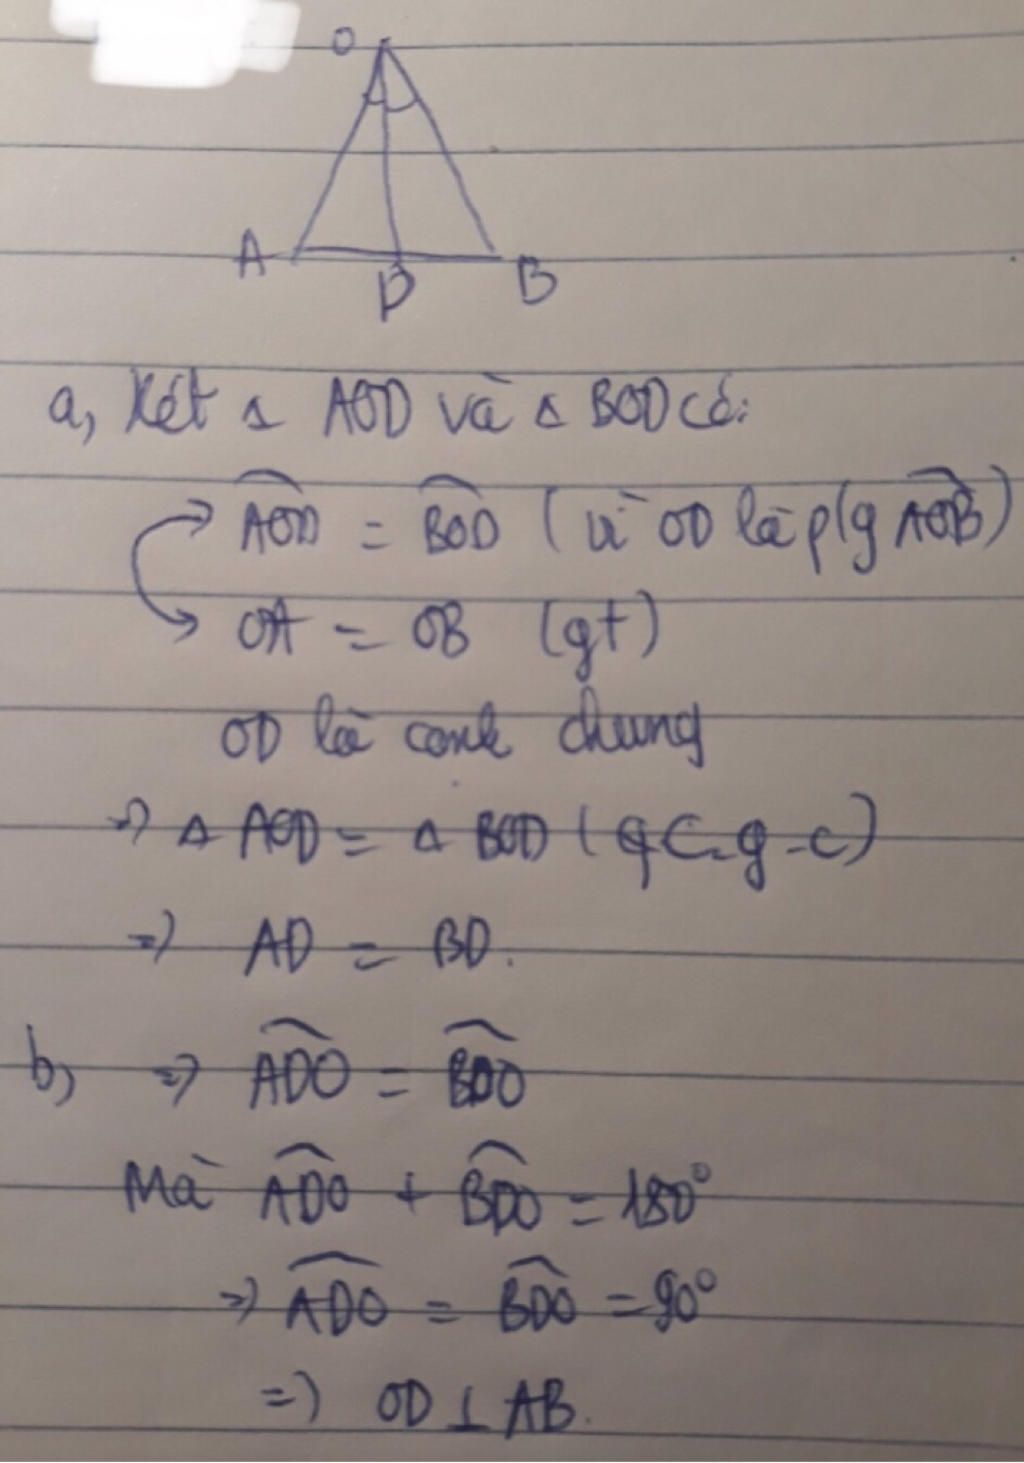 O
A
D
B
a, Xét Δ AOD và Δ BOD có:
\widehat{AOD} = \widehat{BOD} (vì OD là p/g \widehat{AOB})
OA = OB (gt)
OD là canh chung
=> Δ AOD = Δ BOD (c-g-c)
=> AD = BD.
b, => \widehat{ADO} = \widehat{BDO}
Mà \widehat{ADO} + \widehat{BDO} = 180°
=> \widehat{ADO} = \widehat{BDO} = 90°
=> OD ⊥ AB.